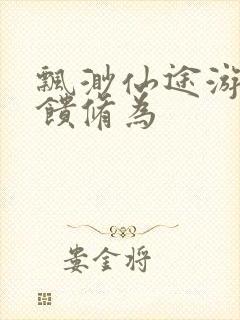 飄渺仙途游
饋脩為
娄金将